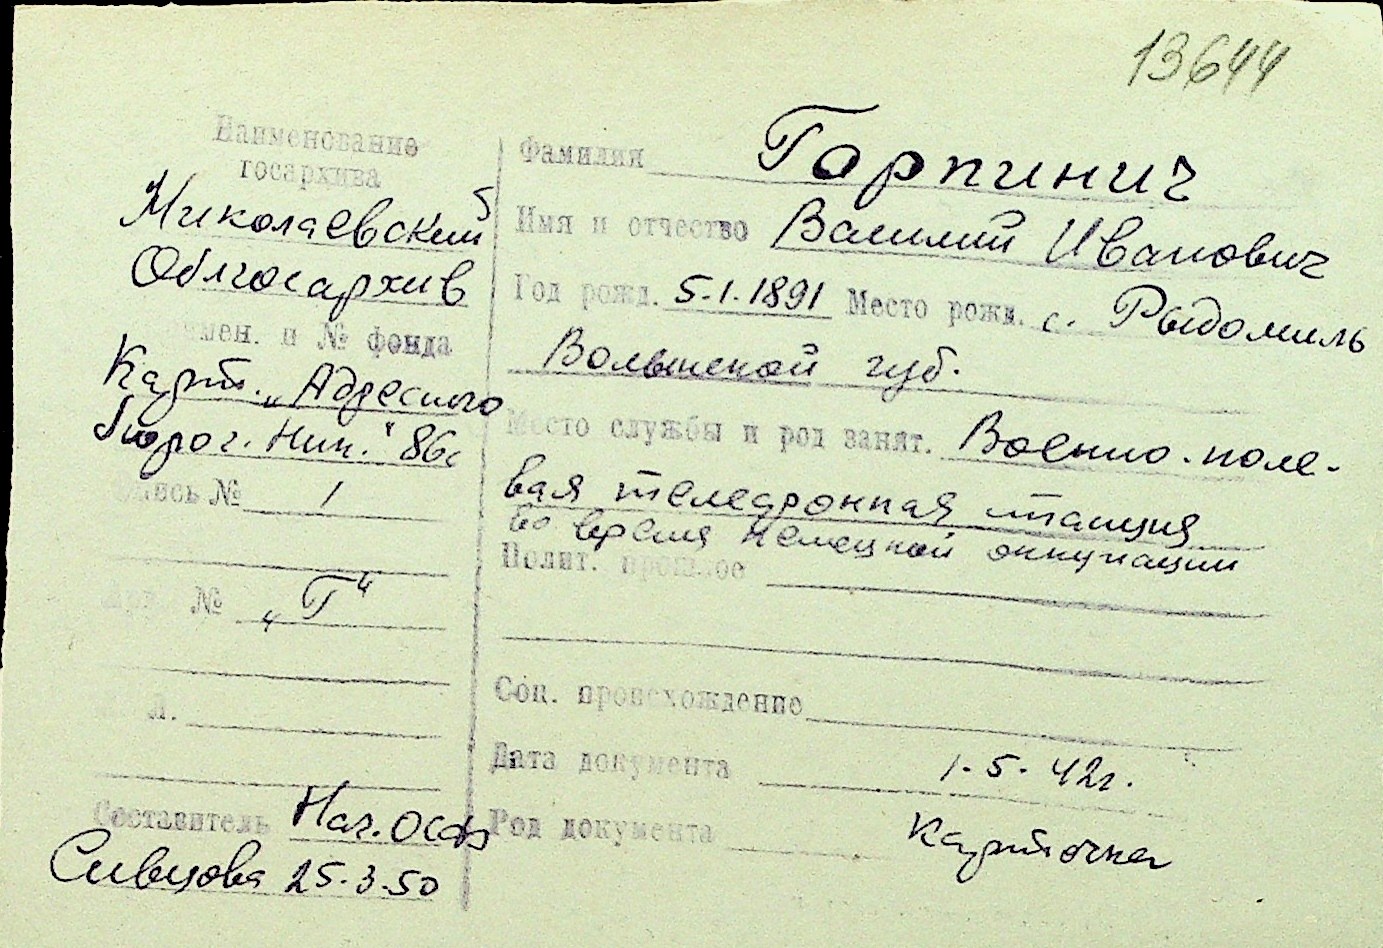 13644
Наименование
госархива
Николаевский
Облгосархив
мен. и № фонда
Карт. „Адресного
бюро г. Ник.“ 86с
Опись № 1
Арх. № „Г“
л.
Составитель Нач. ОСФ
Сивцова 25.3.50
Фамилия Гарпинич
Имя и отчество Василий Иванович
Год рожд. 5.1.1891 Место рожд. с. Рыдомиль
Волынской губ.
Место службы и род занят. Военно-поле-
вая телефонная станция
во время немецкой оккупации
Полит. прошлое
Соц. происхождение
Дата документа 1.5.42г.
Род документа карточка